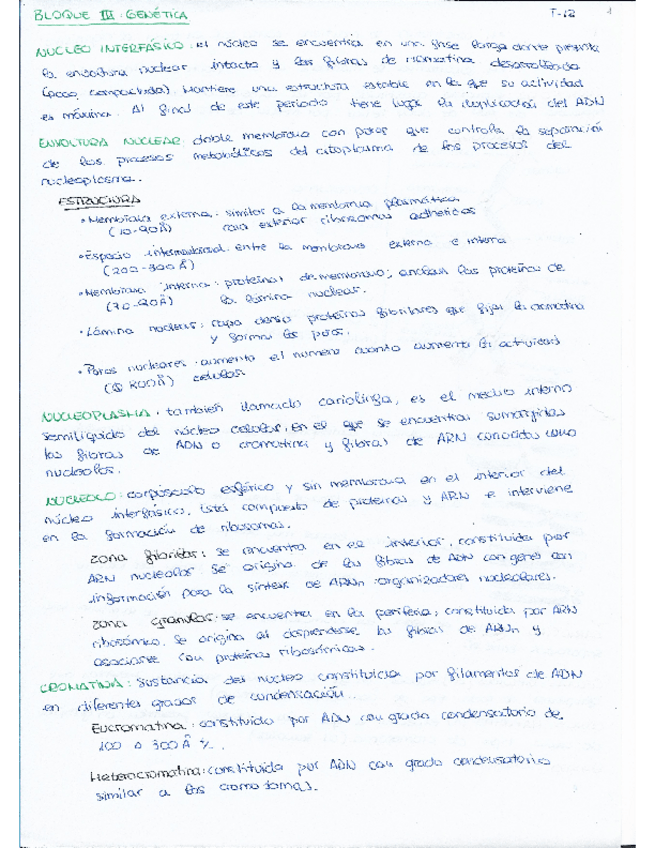 BLOQUE III: GENÉTICA T-12 1
NUCLEO INTERFÁSICO: el núcleo se encuentra en una fase larga donde presenta
la envoltura nuclear intacta y las fibras de cromatina desarrollada
(poco compactada). Mantiene una estructura estable en la que su actividad
es máxima. Al final de este periodo tiene lugar la duplicación del ADN
ENVOLTURA NUCLEAR: doble membrana con poros que controla la separación
de los procesos metabólicos del citoplasma de los procesos del
nucleoplasma.
ESTRUCTURA
• Membrana externa: similar a la membrana plasmática
(70-90Å) cara exterior ribosomas adheridos
• Espacio intermembranal: entre la membrana externa e interna
(200-300 Å)
• Membrana interna: proteínas de membrana; anclan las proteínas de
(70-90Å) la lámina nuclear.
• Lámina nuclear: capa densa proteínas fibrilares que fijan la cromatina
y forma los poros.
• Poros nucleares: aumenta el numero cuanto aumenta la actividad
( 800Å) celular
NUCLEOPLASMA: también llamado cariolinfa, es el medio interno
semilíquido del núcleo celular, en el que se encuentran sumergidas
las fibras de ADN o cromatina y fibras de ARN conocidas como
nucleolos.
NUCLEOLO: corpúsculo esférico y sin membrana en el interior del
núcleo interfásico. Está compuesto de proteínas y ARN e interviene
en la formación de ribosomas.
Zona fibrilar: se encuentra en el interior, constituida por
ARN nucleolar se origina de las fibras de ADN con genes con
información para la síntesis de ARNn: organizadores nucleolares.
Zona granular: se encuentra en la periferia, constituida por ARN
ribosómico. Se origina al desprenderse las fibras de ARNn y
asociarse con proteínas ribosómicas.
CROMATINA: Sustancia del nucleo constituida por filamentos de ADN
en diferentes grados de condensación.
Eucromatina: constituida por ADN con grado condensatorio de
100 a 300Å
Heterocromatina: constituida por ADN con grado condensatorio
similar a los cromosomas.